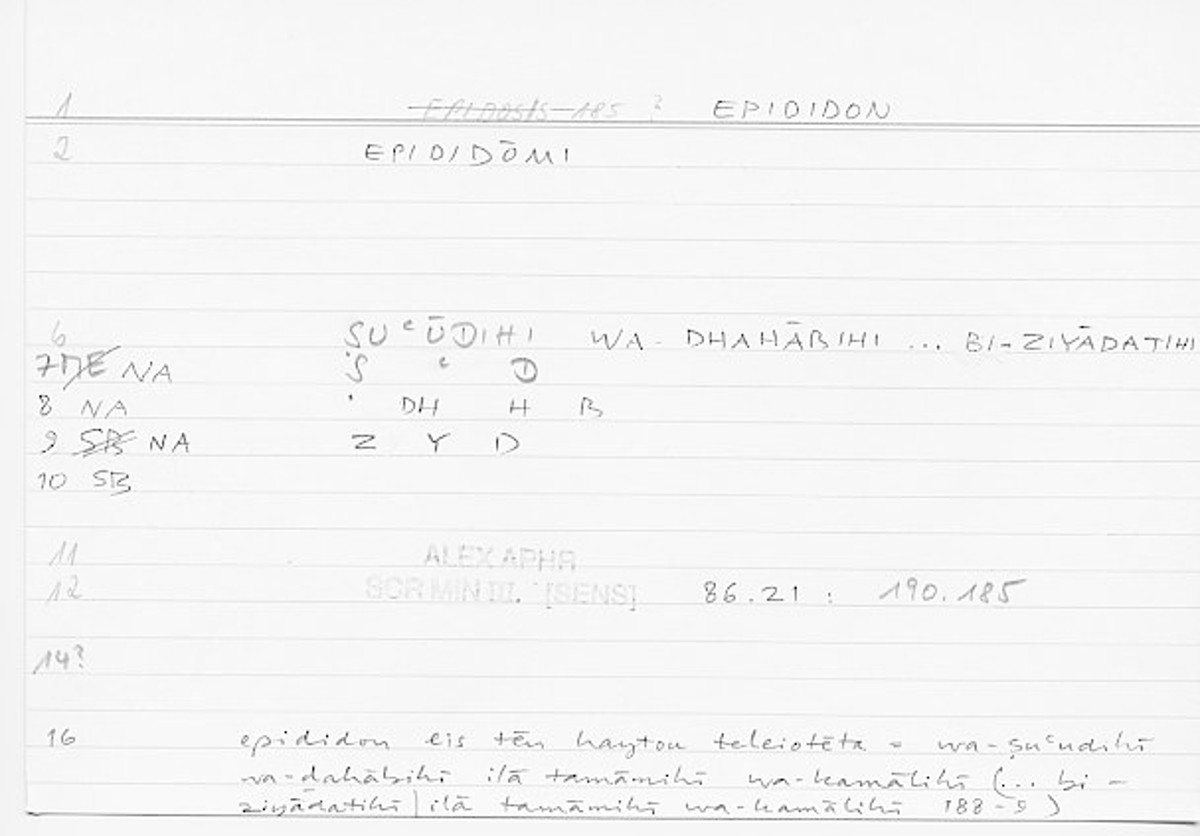 1 EPIDOSIS 185 ? EPIDIDON
2 EPIDIDŌMI
6 ṢUʿŪDIHI WA-DHAHĀBIHI ... BI-ZIYĀDATIHI
7 DE NA Ṣ ʿ D
8 NA ' DH H B
9 SB NA Z Y D
10 SB
11 ALEX APHR
12 SCR MIN III. [SENS] 86.21 : 190.185
14?
16 epididon eis tēn haytou teleiotēta = wa-ṣuʿudihī
wa-dahābihī ilā tamāmihī wa-kamālihī (... bi-
ziyādatihī | ilā tamāmihī wa-kamālihī 188-9)